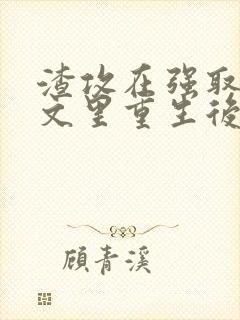 渣攻在强取
文里重生後
顧青溪